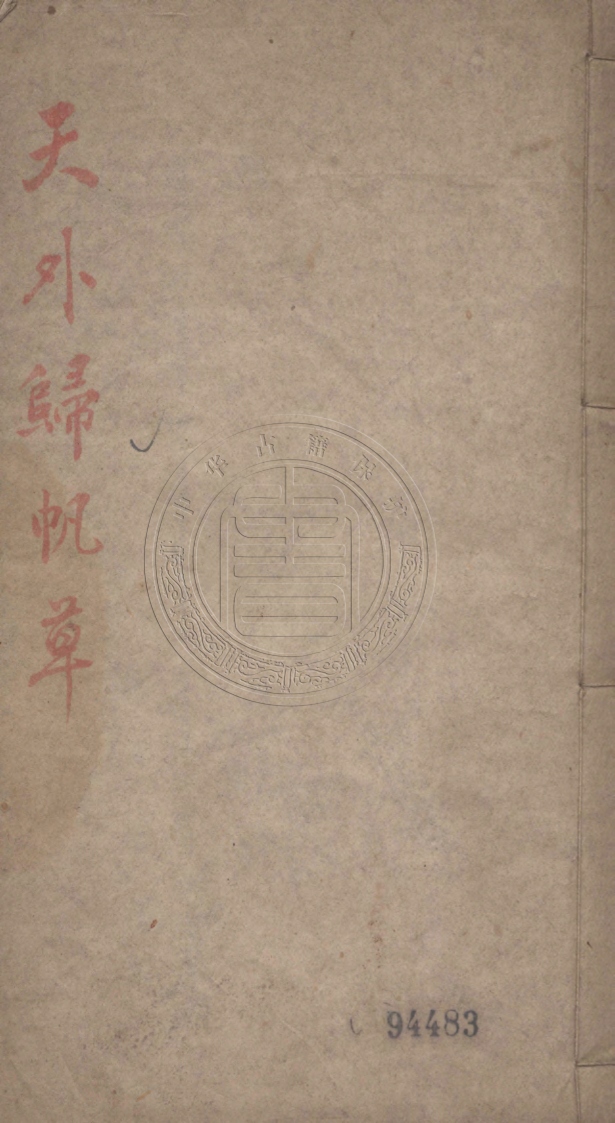 天外歸帆草
中华古籍保护
94483